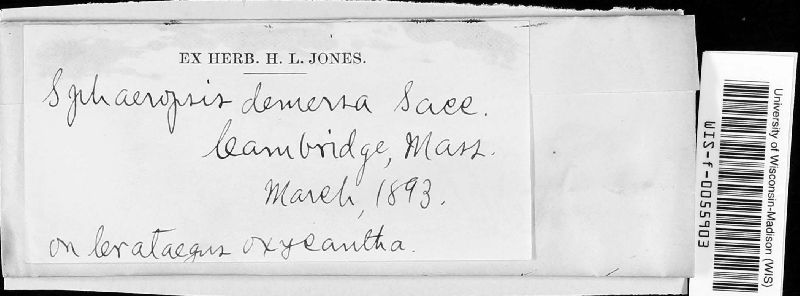 EX HERB. H. L. JONES.
Sphaeropsis demersa Sacc.
Cambridge, Mass.
March, 1893.
on Crataegus oxycantha.
University of Wisconsin-Madison (WIS)
WIS-f-0055903